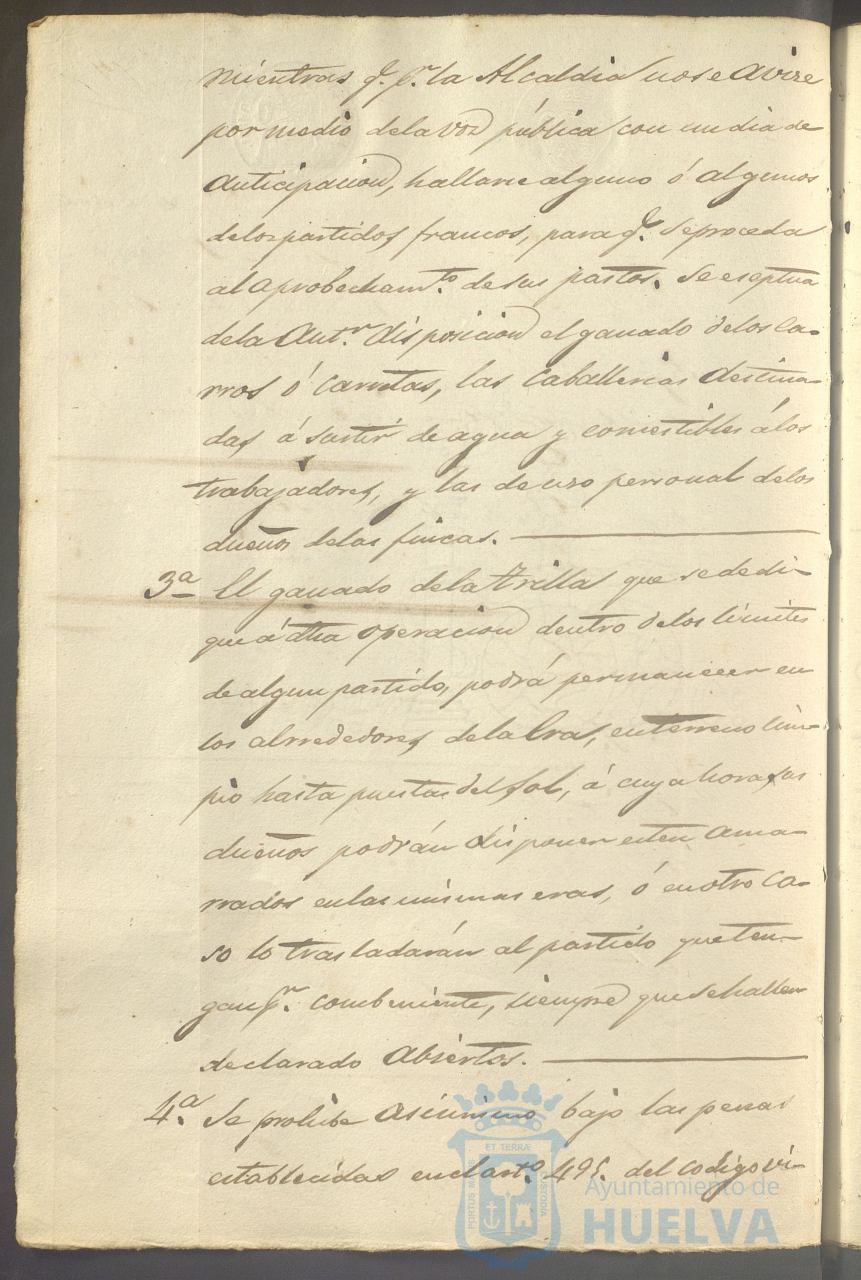 mientras q.e p.r la Alcaldia no se avise
por medio de la voz pública con un dia de
anticipacion, hallarse alguno ó algunos
de los partidos francos, para q.e se proceda
al aprobecham.to de sus pastos. Se eseptua
de la ant.r disposicion el ganado de los ca-
rros ó carretas, las caballerias destina-
das á surtir de agua y comestibles á los
trabajadores, y las de uso personal de los
dueños de las fincas.
3.a El ganado de la trilla que se dedi-
que á dha operacion dentro de los limites
de algun partido, podrá permanecer en
los alrrededores de la Eras, en terreno lim-
pio hasta puestas del Sol, á cuya hora sus
dueños podrán disponer esten ama-
rrados en las mismas eras, ó en otro ca-
so lo trasladarán al partido que ten-
gan p.r combeniente, siempre que se hallen
declarado Abiertos.
4.a Se prohibe asimismo bajo las penas
establecidas en el art.o 495. del codigo vi-
ET TERRÆ
PORTUS MARIS
CUSTODIA
Ayuntamiento de
HUELVA